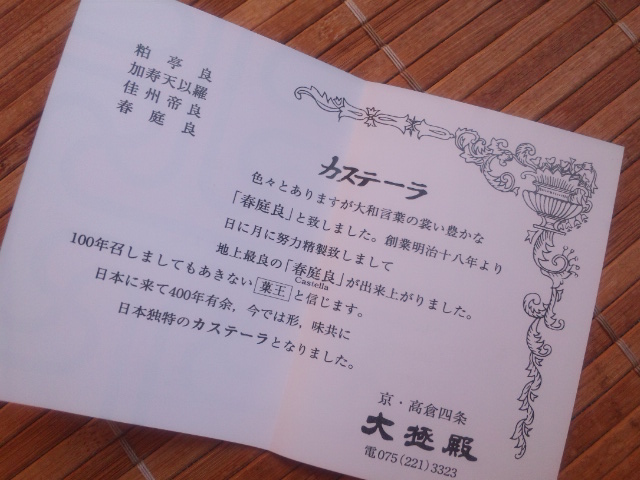 粕亭良
加寿天以羅
佳州帝良
春庭良
カステーラ
色々とありますが大和言葉の装い豊かな
「春庭良」と致しました。創業明治十八年より
日に月に努力精製致しまして
地上最良の「春庭良」が出来上がりました。
Castella
100年召しましてもあきない菓王と信じます。
日本に来て400年有余，今では形，味共に
日本独特のカステーラとなりました。
京・高倉四条
大極殿
電075(221)3323